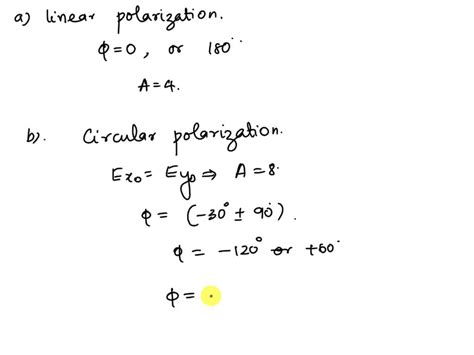 a) linear polarization.
φ=0, or 180°
A=4.
b). Circular polarization.
Ex₀ = Ey₀ ⇒ A=8.
φ = (-30° ± 90°).
φ = -120° or +60°
φ =